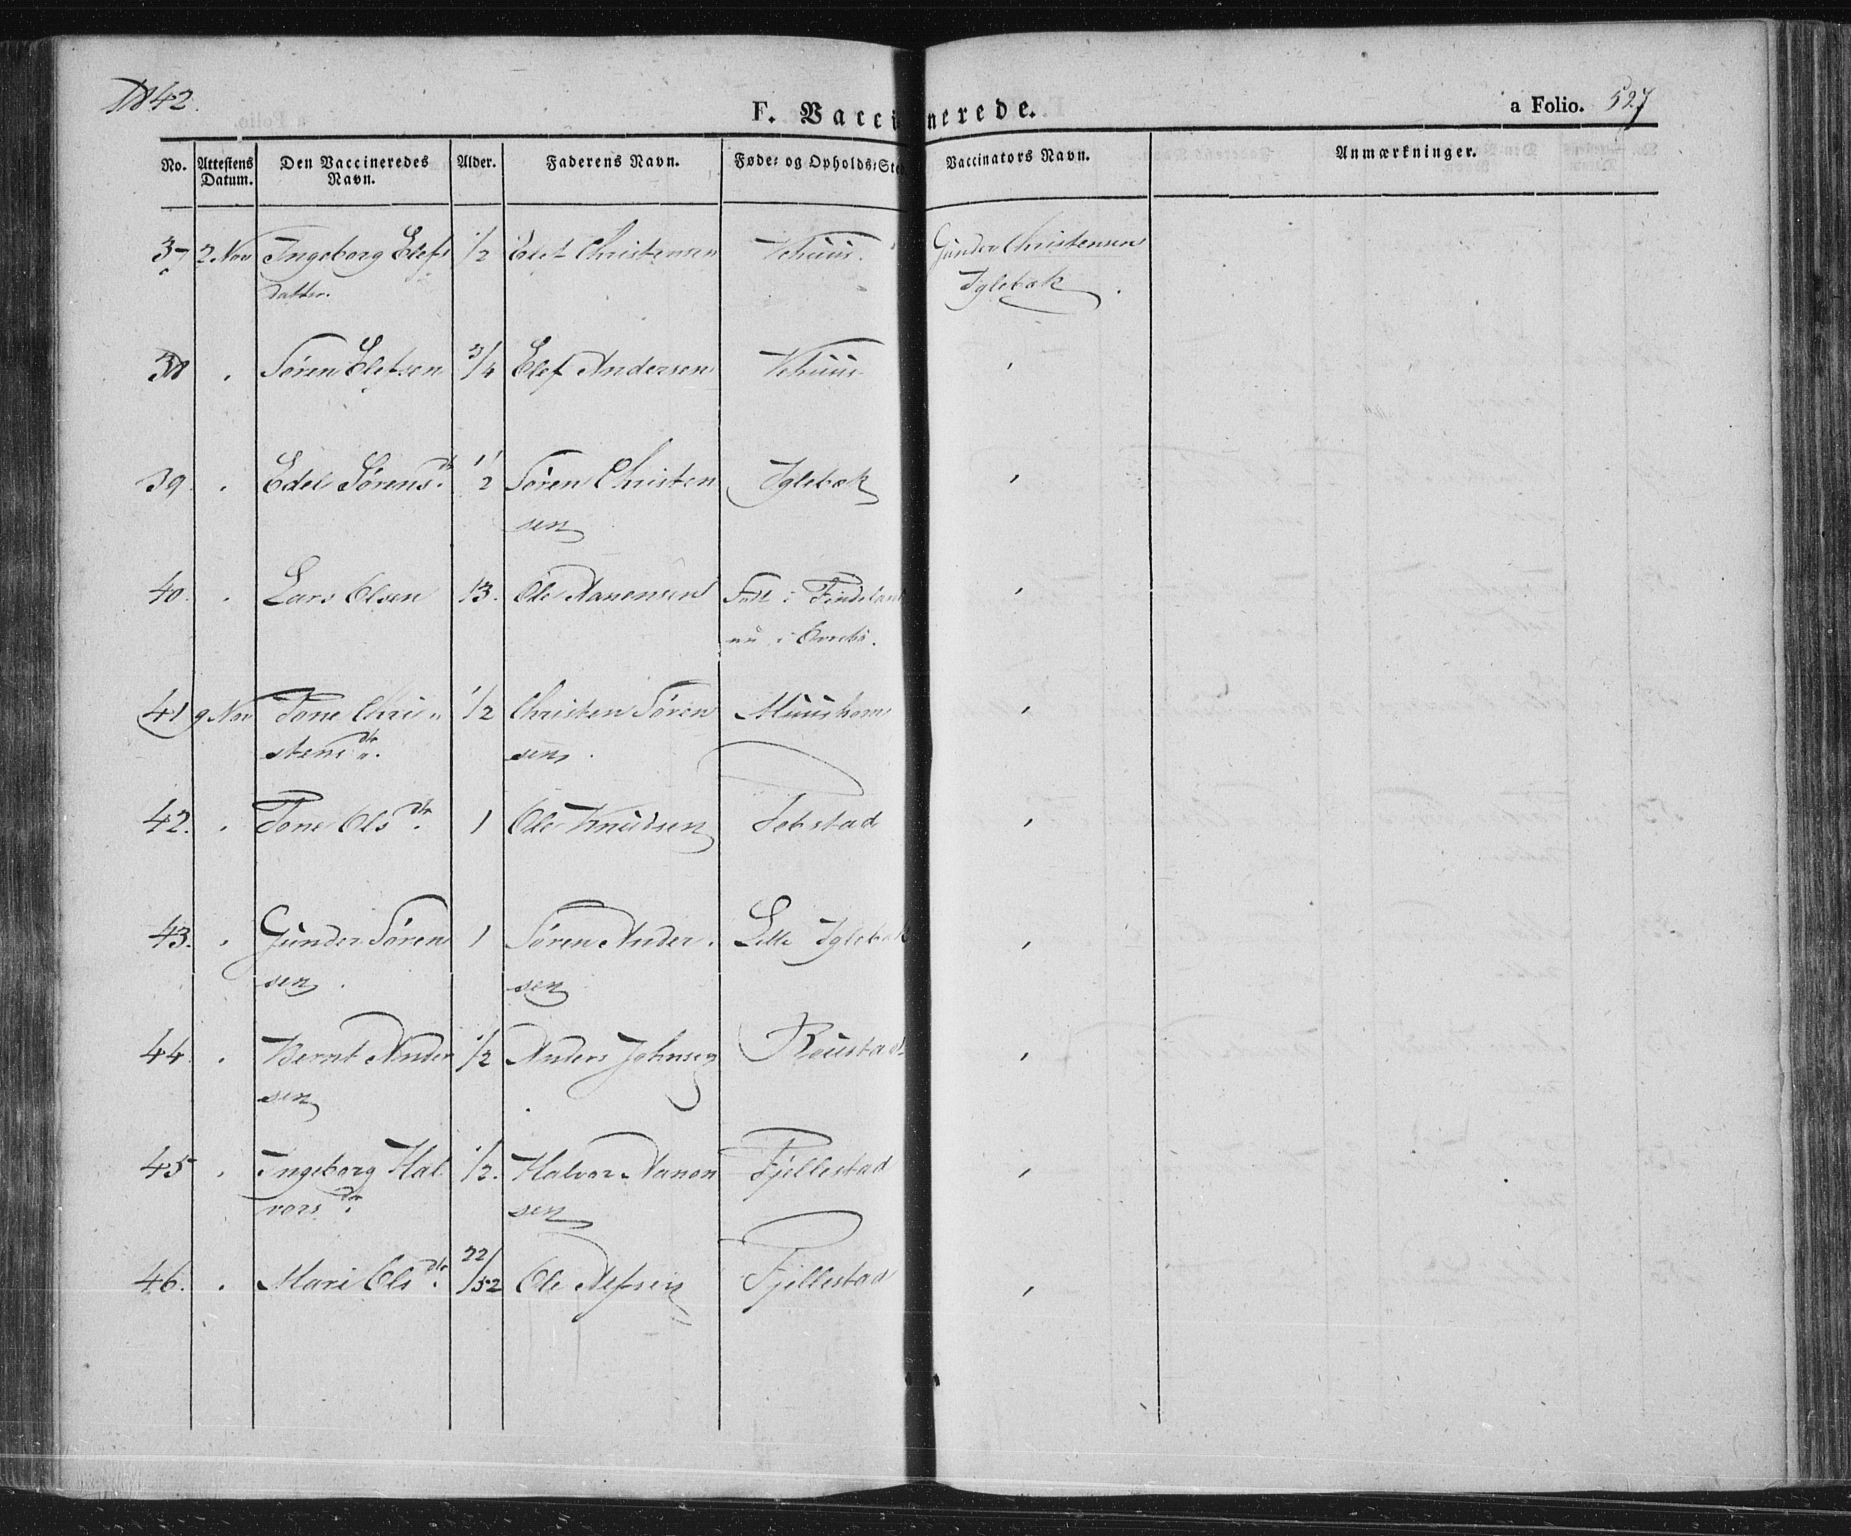 1842.
F. Vaccinerede.
a Folio. 527
No. Attestens Datum. Den Vaccineredes Navn. Alder. Faderens Navn. Føde- og Opholds-Sted Vaccinators Navn. Anmærkninger.
37 2 Nov Ingeborg Elefs 1/2 Elef Christensen Vehuus. Gunder Christensen
datter. Iglebæk
38 . Søren Elefsen 3/4 Elef Andersen Vehuus
39 . Edel Sørensdtr 1/2 Søren Christen Iglebæk
sen
40. . Lars Olsen 13. Ole Aanensen Født i Findeland
nu i
41 9 Nov Tone Chri 1/2 Christen Søren
stensdtr. sen.
42. . Tone Olsdtr. 1 Ole Knudsen
43. . Gunder Søren 1 Søren Ander Lille Iglebæk
sen. sen
44. . Bernt Ander 1/2 Anders Johnsen Røustad
sen
45 . Ingeborg Hal 1/2. Halvor Aanen Fjellestad
vorsdtr. sen
46. . Mari Olsdtr. 22/52 Ole Alfsen Fjellestad